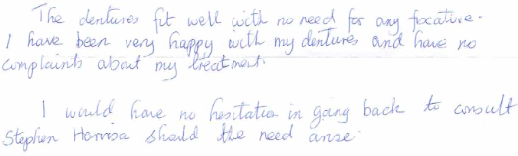 The dentures fit well with no need for any fixative.
I have been very happy with my dentures and have no
complaints about my treatment.
I would have no hesitation in going back to consult
Stephen should the need arise.